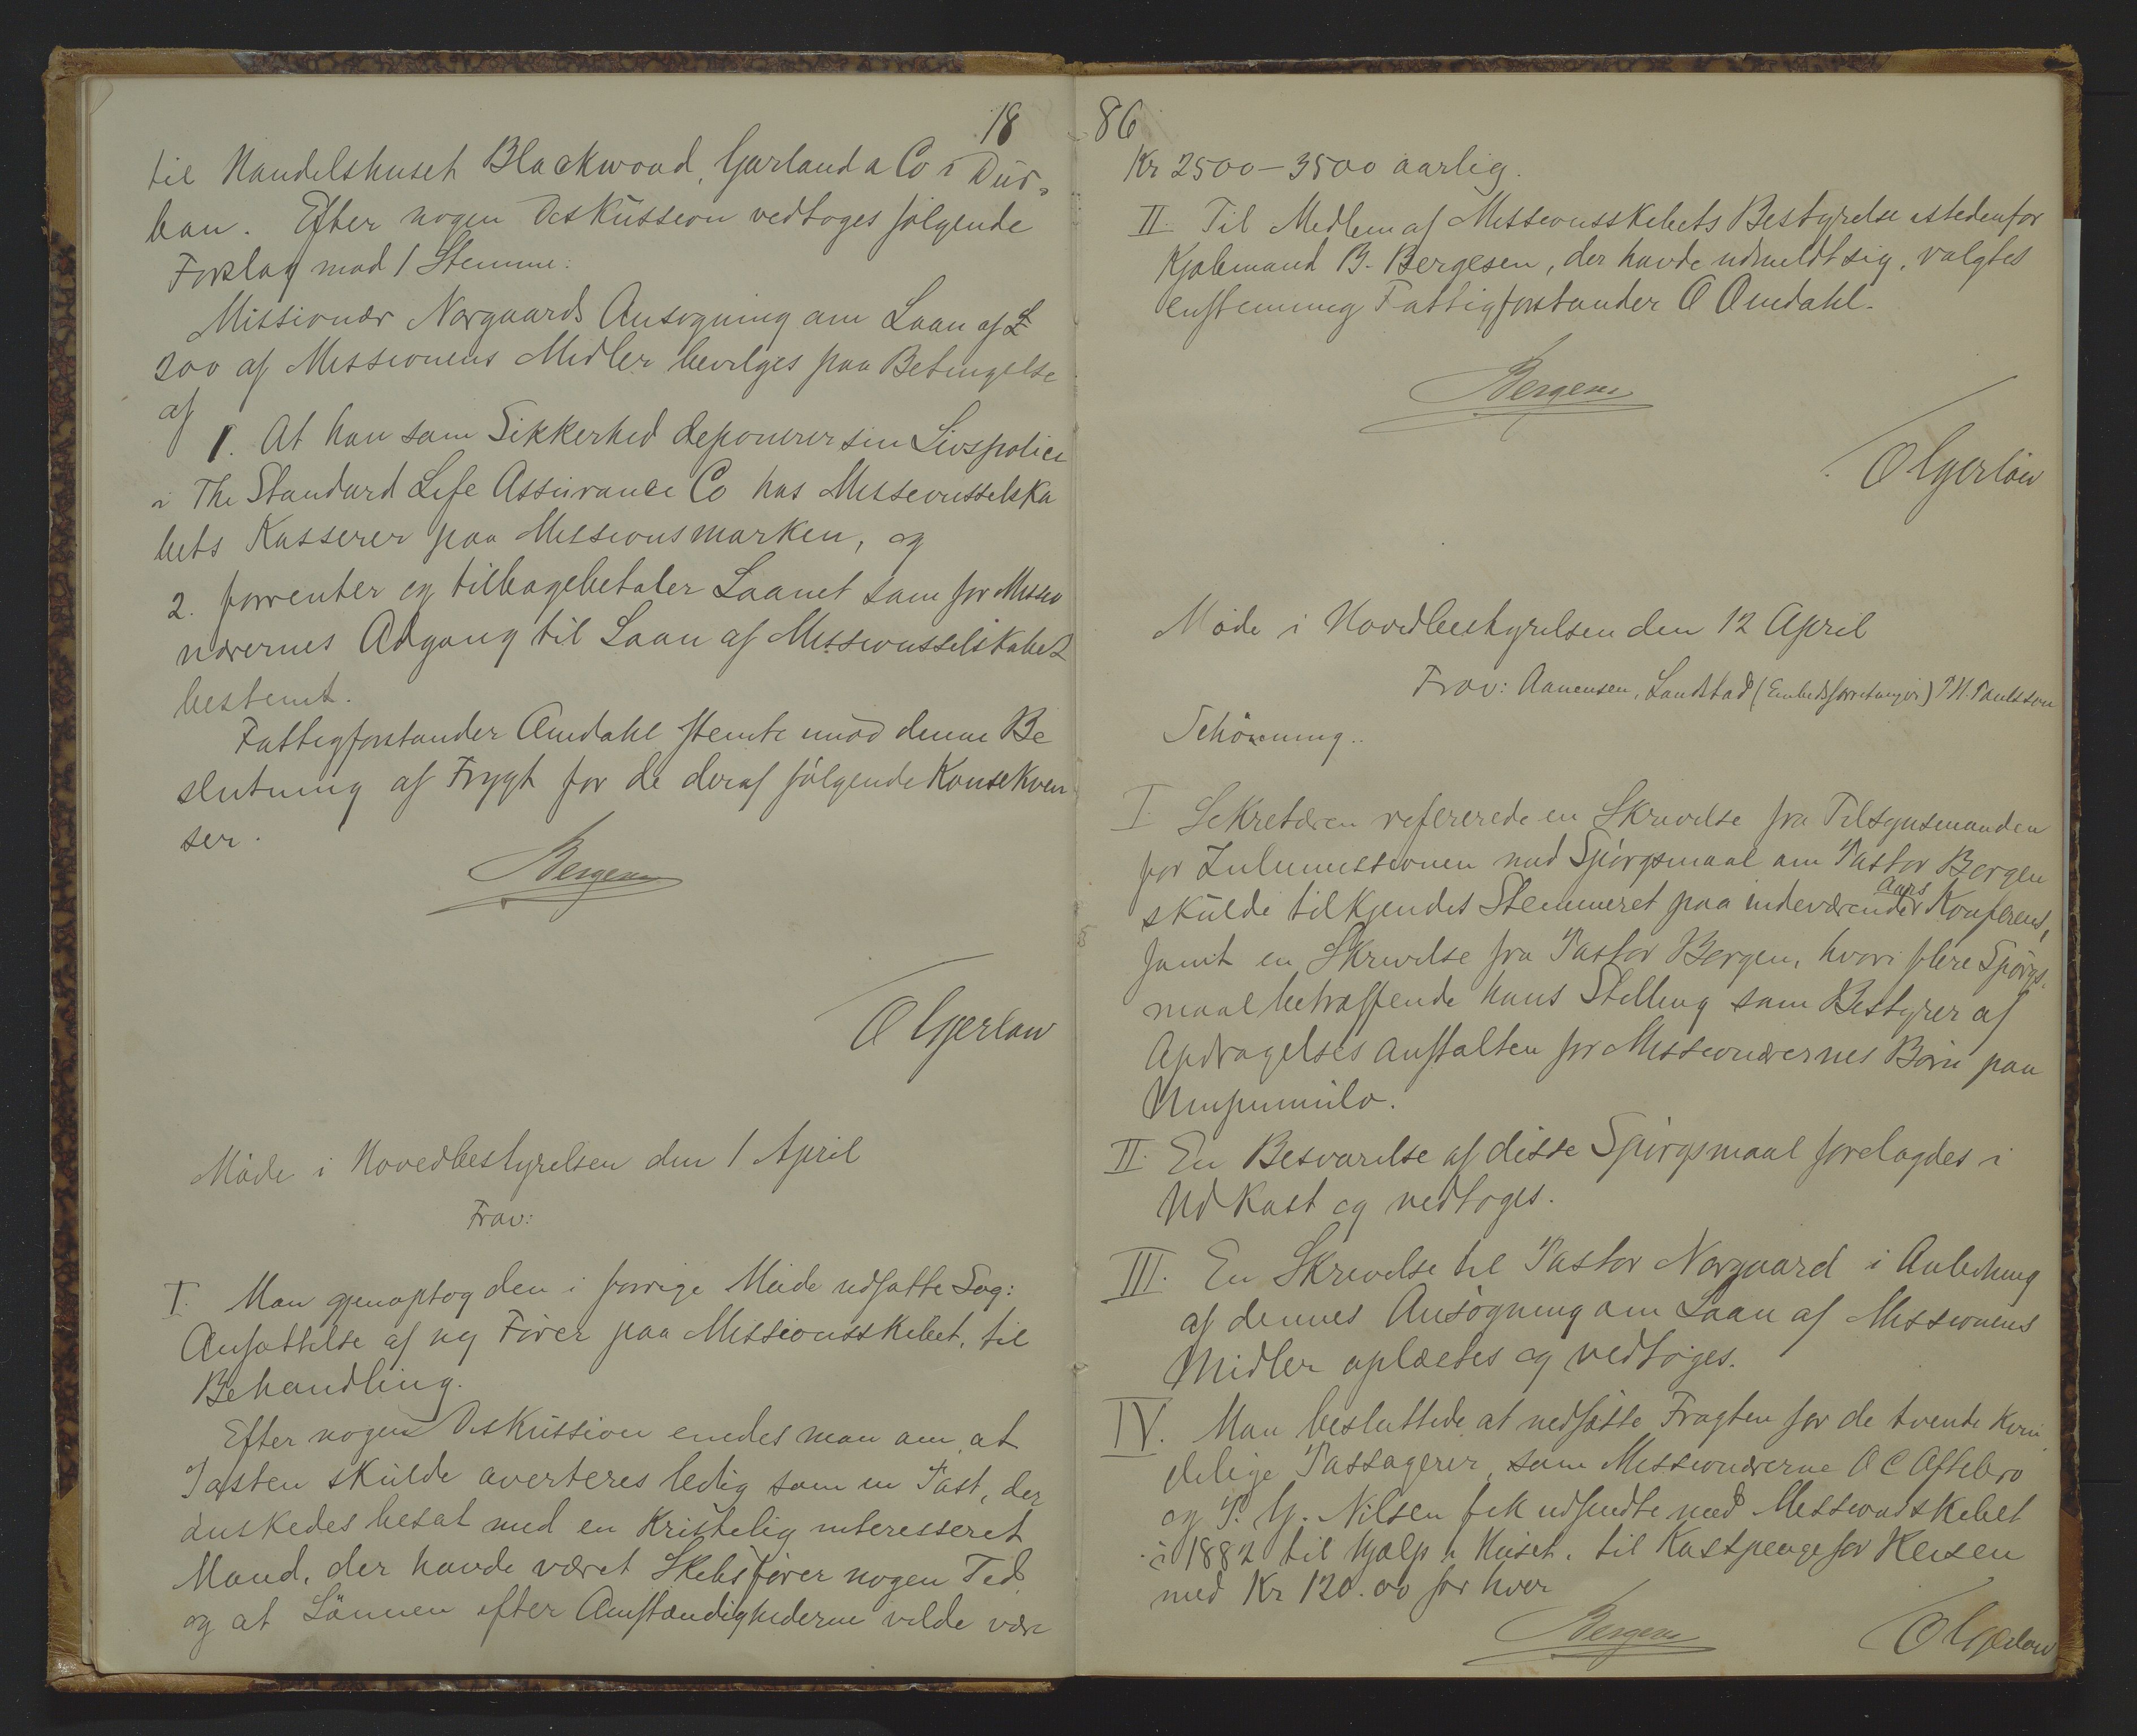 18
til Handelshuset Blackwood, Garland a Co i Dur-
ban. Efter nogen Diskussion vedtoges følgende
Forslag mod 1 Stemme:
Missionær Norgaards Ansøgning om Laan af £
200 af Missionens Midler bevilges paa Betingelse
af
1. At han som Sikkerhed deponerer sin Livspolice
i The Standard Life Assurance Co hos Missionsselska
bets Kasserer paa Missionsmarken, og
2. forrenter og tilbagebetaler Laanet som for Missio
nærernes Adgang til Laan af Missionsselskabet
bestemt.
Fattigforstander Amdahl stemte mod denne Be
slutning af Frygt for de deraf følgende Konsekven
ser.
Bergesen
O Gjerløw
Møde i Hovedbestyrelsen den 1 April
Frav:
I. Man gjenoptog den i forrige Møde udsatte Sag:
Ansættelse af ny Fører paa Missionsskibet, til
Behandling.
Efter nogen Diskussion enedes man om, at
Posten skulde averteres ledig som en Post, der
ønskedes besat med en kristelig interesseret
Mand, der havde været Skibsfører nogen Tid,
og at Lønnen efter Omstændighederne vilde være
86
Kr 2500-3500 aarlig.
II. Til Medlem af Missionsskibets Bestyrelse istedenfor
Kjøbmand B. Bergesen, der havde udmeldt sig, valgtes
enstemmig Fattigforstander O Omdahl.
Bergesen
O Gjerløw
Møde i Hovedbestyrelsen den 12 April
Frav: Aanensen, Landstad (Embedsforretninger) Paulsson
Schønning..
I. Sekretæren refererede en Skrivelse fra Tilsynsmanden
for Zulumissionen med Spørgsmaal om Pastor Borgen
skulde tilkjendes Stemmeret paa indeværende Aars Konferens,
samt en Skrivelse fra Pastor Borgen, hvori flere Spørgs-
maal betræffende hans Stilling som Bestyrer af
Opdragelsesanstalten for Missionærernes Børn paa
Umpumulo.
II. En Besvarelse af disse Spørgsmaal forelagdes i
Udkast og vedtoges.
III. En Skrivelse til Pastor Norgaard i Anledning
af dennes Ansøgning om Laan af Missionens
Midler oplæstes og vedtoges.
IV. Man besluttede at nedsætte Fragten for de tvende kvin
delige Passagerer, som Missionærerne O C Oftebro
og P. G. Nilsen fik udsendte med Missionsskibet
i 1882 til Hjælp i Huset, til Kostpenge for Reisen
med Kr 120.00 for hver
Bergesen
O Gjerløw